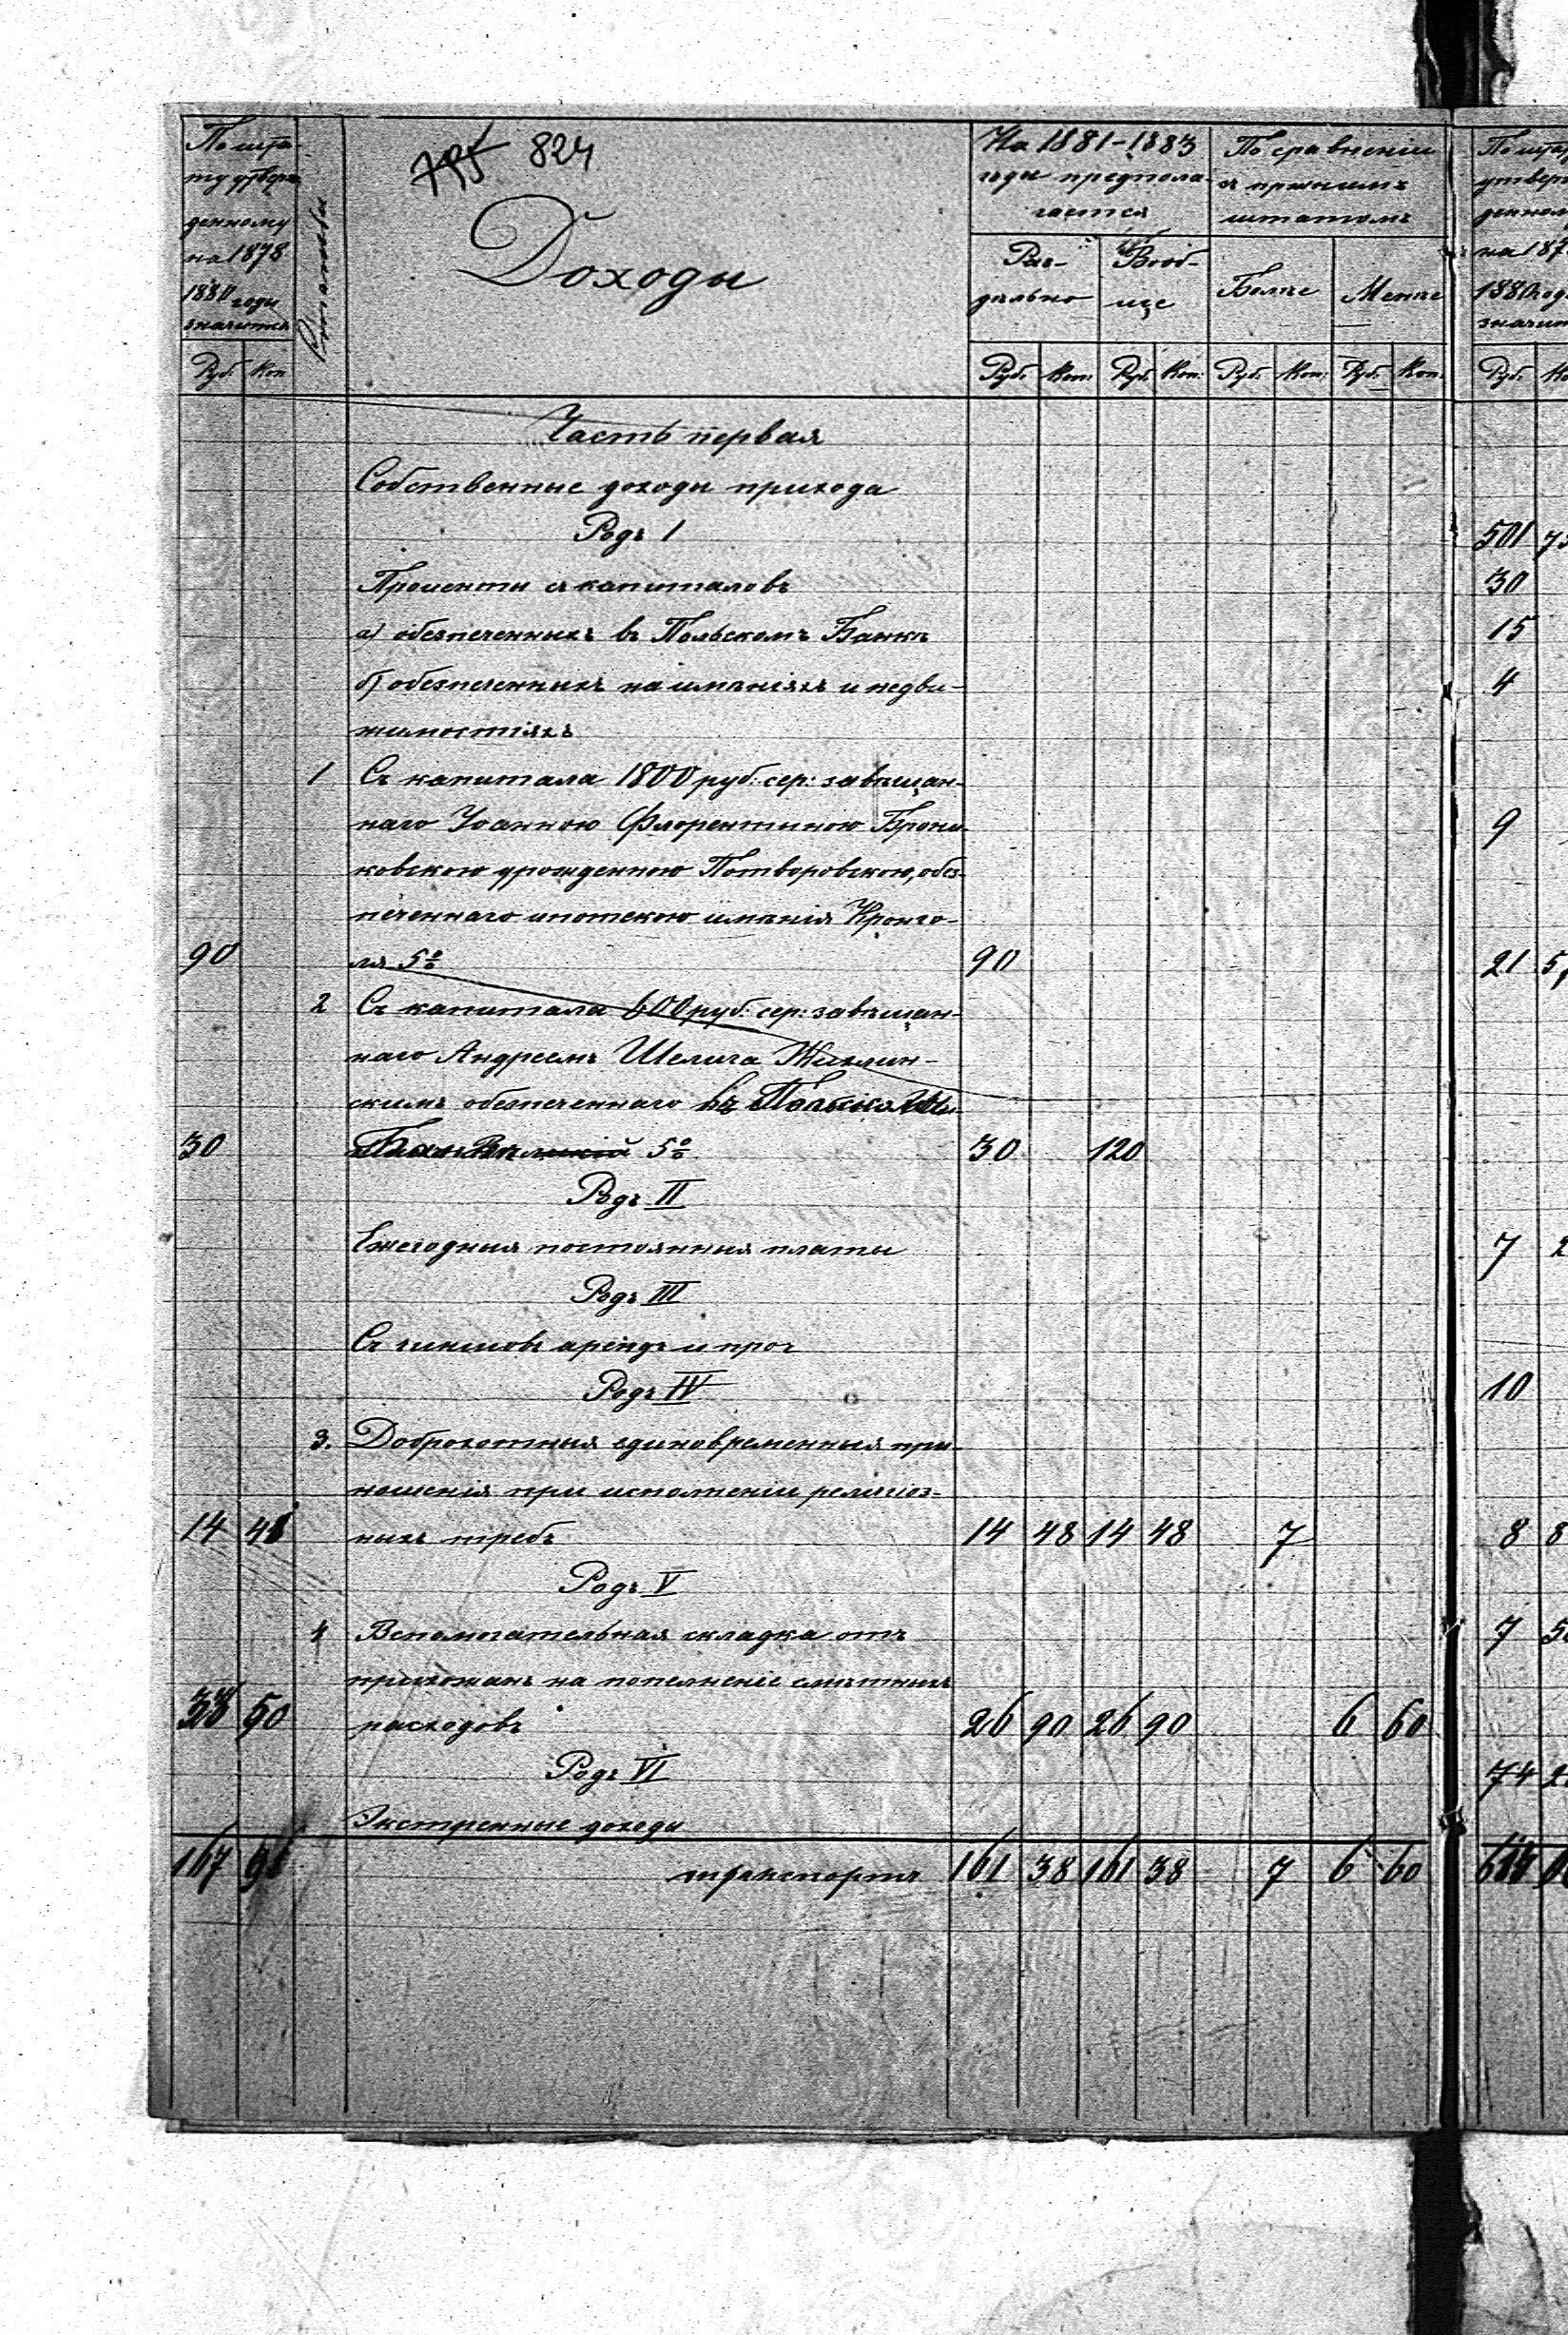 795 824
По шта-
ту утверж
денному
на 1878
1880 годы
значится
Руб. Коп
Доходы
На 1881-1883
годы предпола-
гается
Раз-
дѣльно
Вооб-
ще
По сравненiи
съ прежнимъ
штатомъ
Болѣе
Менѣе
Руб. Коп. Руб. Коп. Руб. Коп. Руб. Коп.
Часть первая
Собственные доходы прихода
Родъ I
Проценты съ капиталовъ
а) обезпеченныхъ въ Польскомъ Банкѣ
б) обезпеченныхъ на имѣнiяхъ и недви-
жимостяхъ
1 Съ капитала 1800 руб: сер: завѣщан-
наго Iоанною Флорентиною Брони-
ковскою урожденною Потворовскою, обез-
печеннаго ипотекою имѣнiя Кронго-
90 ля 5% 90
2 Съ капитала 600 руб: сер: завѣщан-
наго Андреемъ Шелига Жихлин-
скимъ обезпеченнаго въ Польскомъ
30 Банкѣ 5% 30 120
Родъ II
Ежегодныя постоянныя платы
Родъ III
Съ чиншовъ арендъ и проч
Родъ IV
3. Доброхотныя единовременныя при-
ношенiя при исполненiи религiоз-
14 41 ныхъ требъ 14 48 14 48 7
Родъ V
4 Вспомогательная складка отъ
прихожанъ на пополненiе смѣтныхъ
33 50 расходовъ 26 90 26 90 6 60
Родъ VI
Экстренные доходы
167 91 транспортъ 161 38 161 38 7 6 60
По шта
утверж
денном
на 187
1880 год
значит
Руб.
501
30
15
4
9
21
7
10
8
7
74